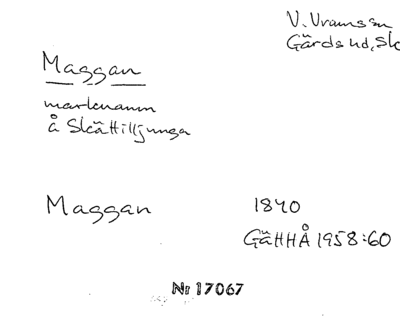 V. Vramsån
Gärds hd, Sk
Maggan
marknamn
å Skättilljunga
Maggan 1840
GäHHÅ 1958:60
Nr 17067